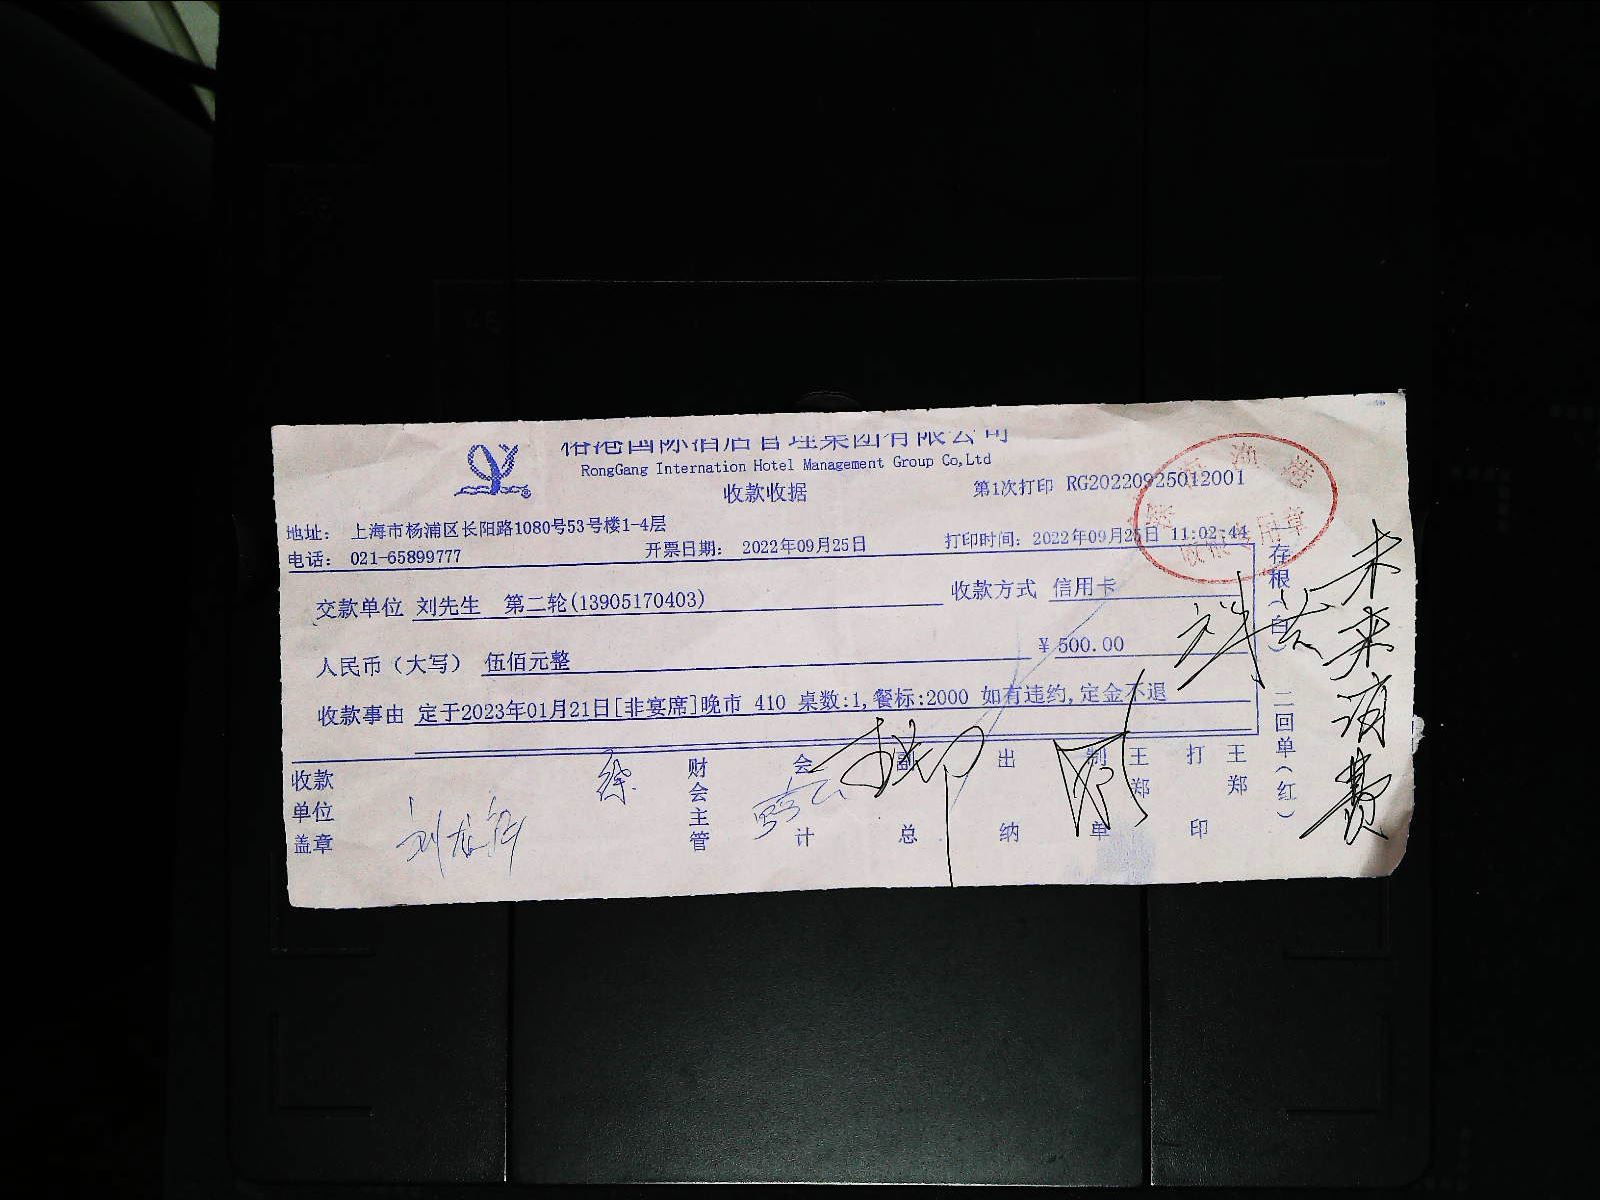 港国际酒店管理集团有限公司
RongGang Internation Hotel Management Group Co,Ltd
收款收据
第1次打印 RG20220925012001
地址： 上海市杨浦区长阳路1080号53号楼1-4层
电话： 021-65899777 开票日期： 2022年09月25日 打印时间： 2022年09月25日 11:02:44
交款单位 刘先生 第二轮(13905170403) 收款方式 信用卡
人民币（大写） 伍佰元整 ¥500.00
收款事由 定于2023年01月21日[非宴席]晚市 410 桌数:1,餐标:2000 如有违约,定金不退
收款单位盖章
财会主管
会计
副总
出纳
制单 王郑
打印 王郑
存根（白） 二回单（红）
未来消费